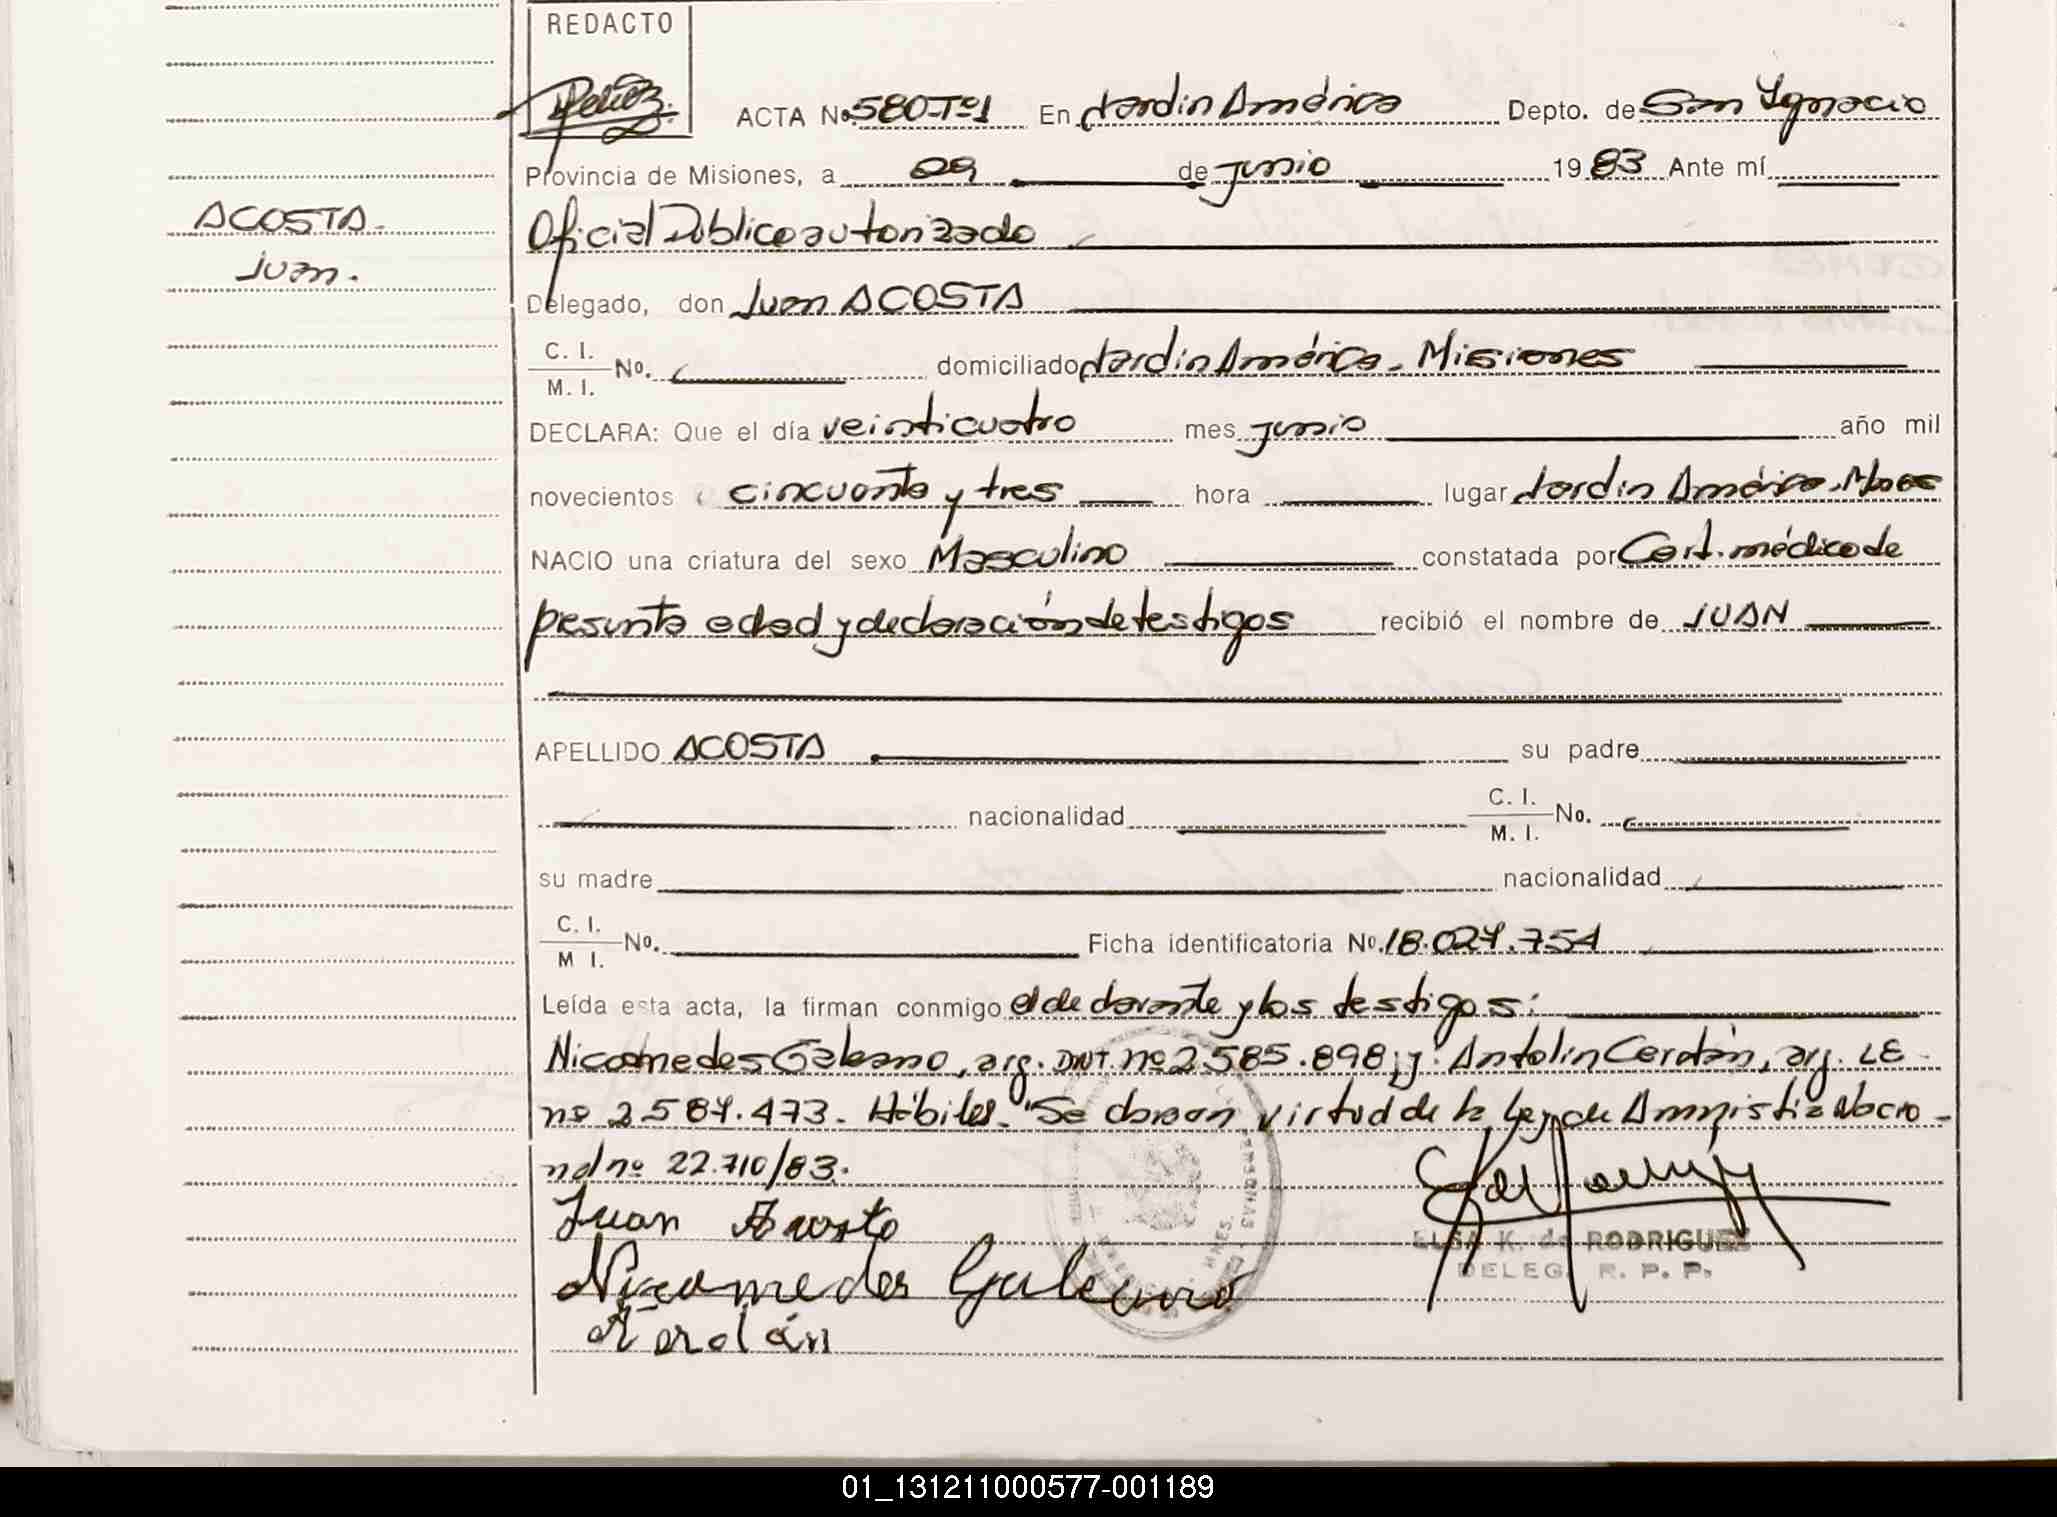 REDACTO
ACTA No. 580-Tº1 En Jardin América Depto. de San Ygnacio
Provincia de Misiones, a 09 de junio 1983 Ante mí
ACOSTA.
Oficial Público autorizado
Juan.
Delegado, don Juan ACOSTA
C. I.
M. I. No. domiciliado Jardin América. Misiones
DECLARA: Que el día veinticuatro mes junio año mil
novecientos cincuenta y tres hora lugar Jardin América. Mnes
NACIO una criatura del sexo Masculino constatada por Cert. médico de
presunta edad y declaración de testigos recibió el nombre de JUAN
APELLIDO ACOSTA su padre
nacionalidad C. I.
M. I. No.
su madre nacionalidad
C. I.
M I. No. Ficha identificatoria No. 18.027.754
Leída esta acta, la firman conmigo el declarante y los testigos:
Nicomedes Galeano, arg. DNI. nº 2.585.898; y: Antolin Cerdán, arg. LE
nº 2.587.473. Hábiles. Se labra en virtud de la Ley de Amnistia Nacio-
nal nº 22.710/83.
Juan Acosta
ELSA K. de RODRIGUEZ
DELEG. R. P. P.
Nicomedes Galeano
A Cerdán
01_131211000577-001189